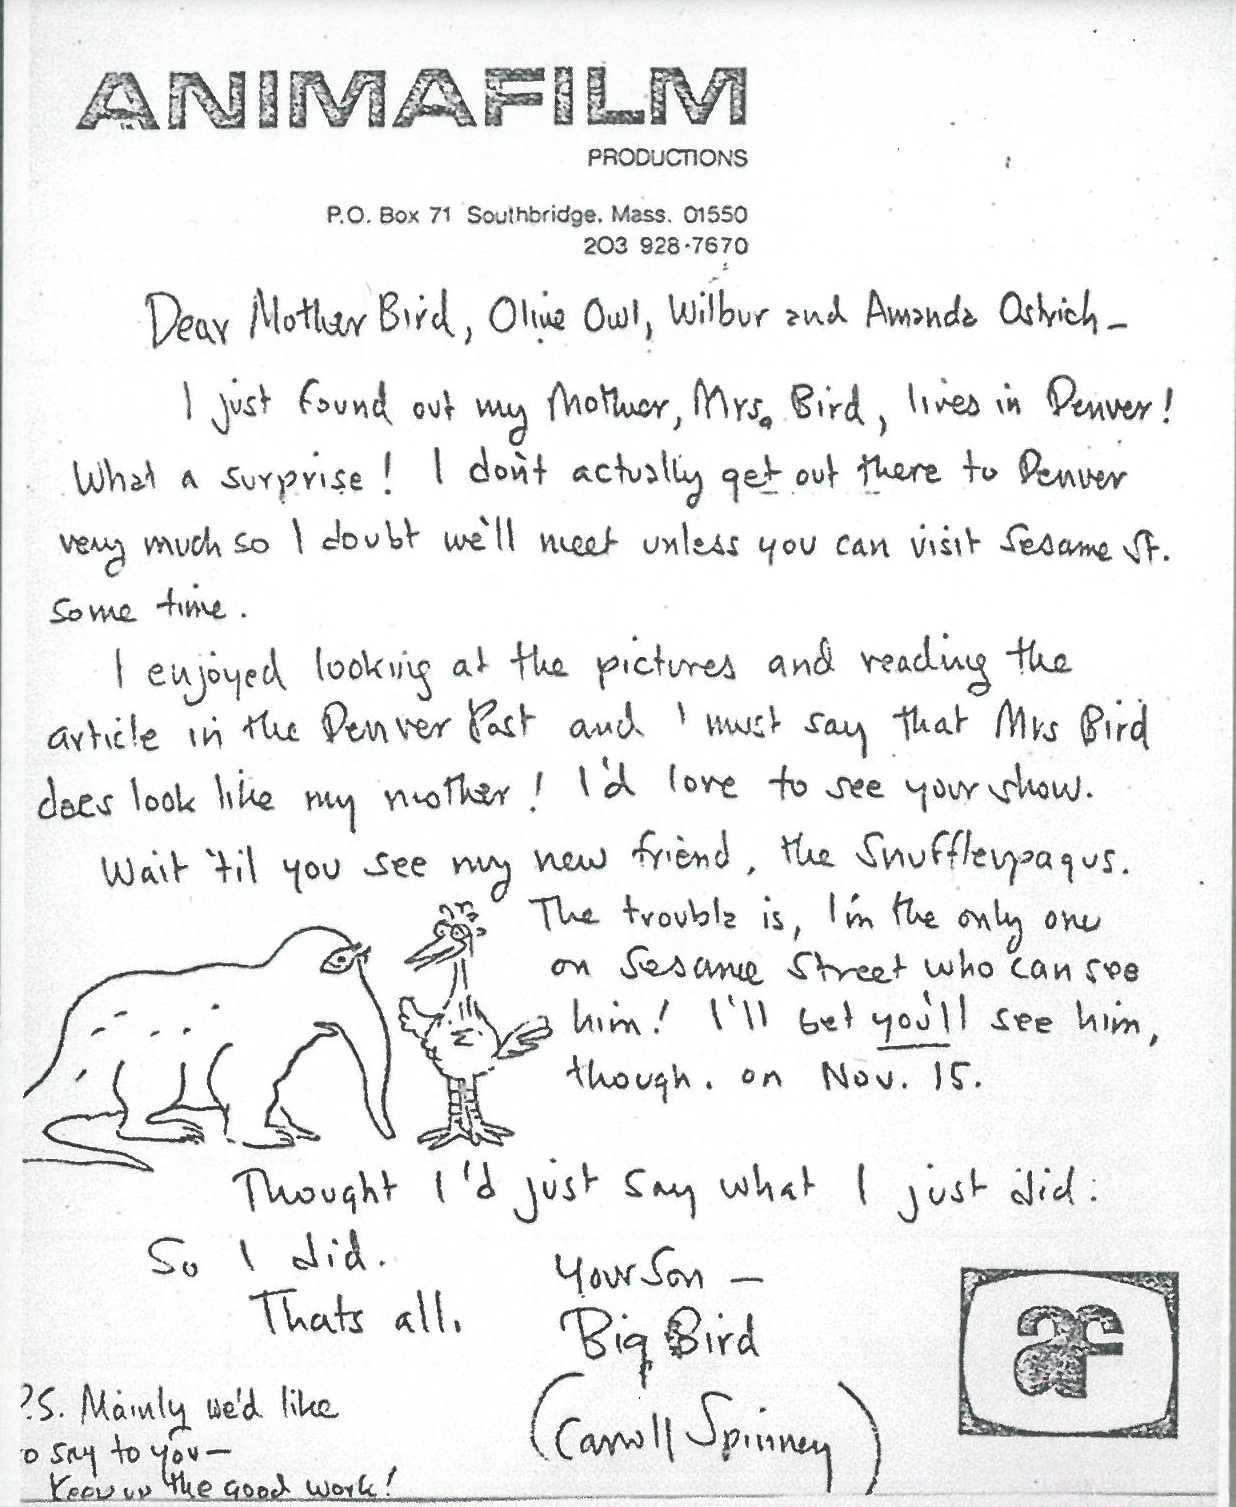 ANIMAFILM
PRODUCTIONS
P.O. Box 71 Southbridge, Mass. 01550
203 928-7670
Dear Mother Bird, Olive Owl, Wilbur and Amanda Ostrich –
I just found out my Mother, Mrs. Bird, lives in Denver!
What a surprise! I don't actually get out there to Denver
very much so I doubt we'll meet unless you can visit Sesame St.
some time.
I enjoyed looking at the pictures and reading the
article in the Denver Post and I must say that Mrs Bird
does look like my mother! I'd love to see your show.
Wait 'til you see my new friend, the Snuffleupagus.
The trouble is, I'm the only one
on Sesame Street who can see
him! I'll bet you'll see him,
though. on Nov. 15.
Thought I'd just say what I just did.
So I did.
Thats all.
Your Son –
Big Bird
(Carroll Spinney)
P.S. Mainly we'd like
to say to you –
Keep up the good work!
af